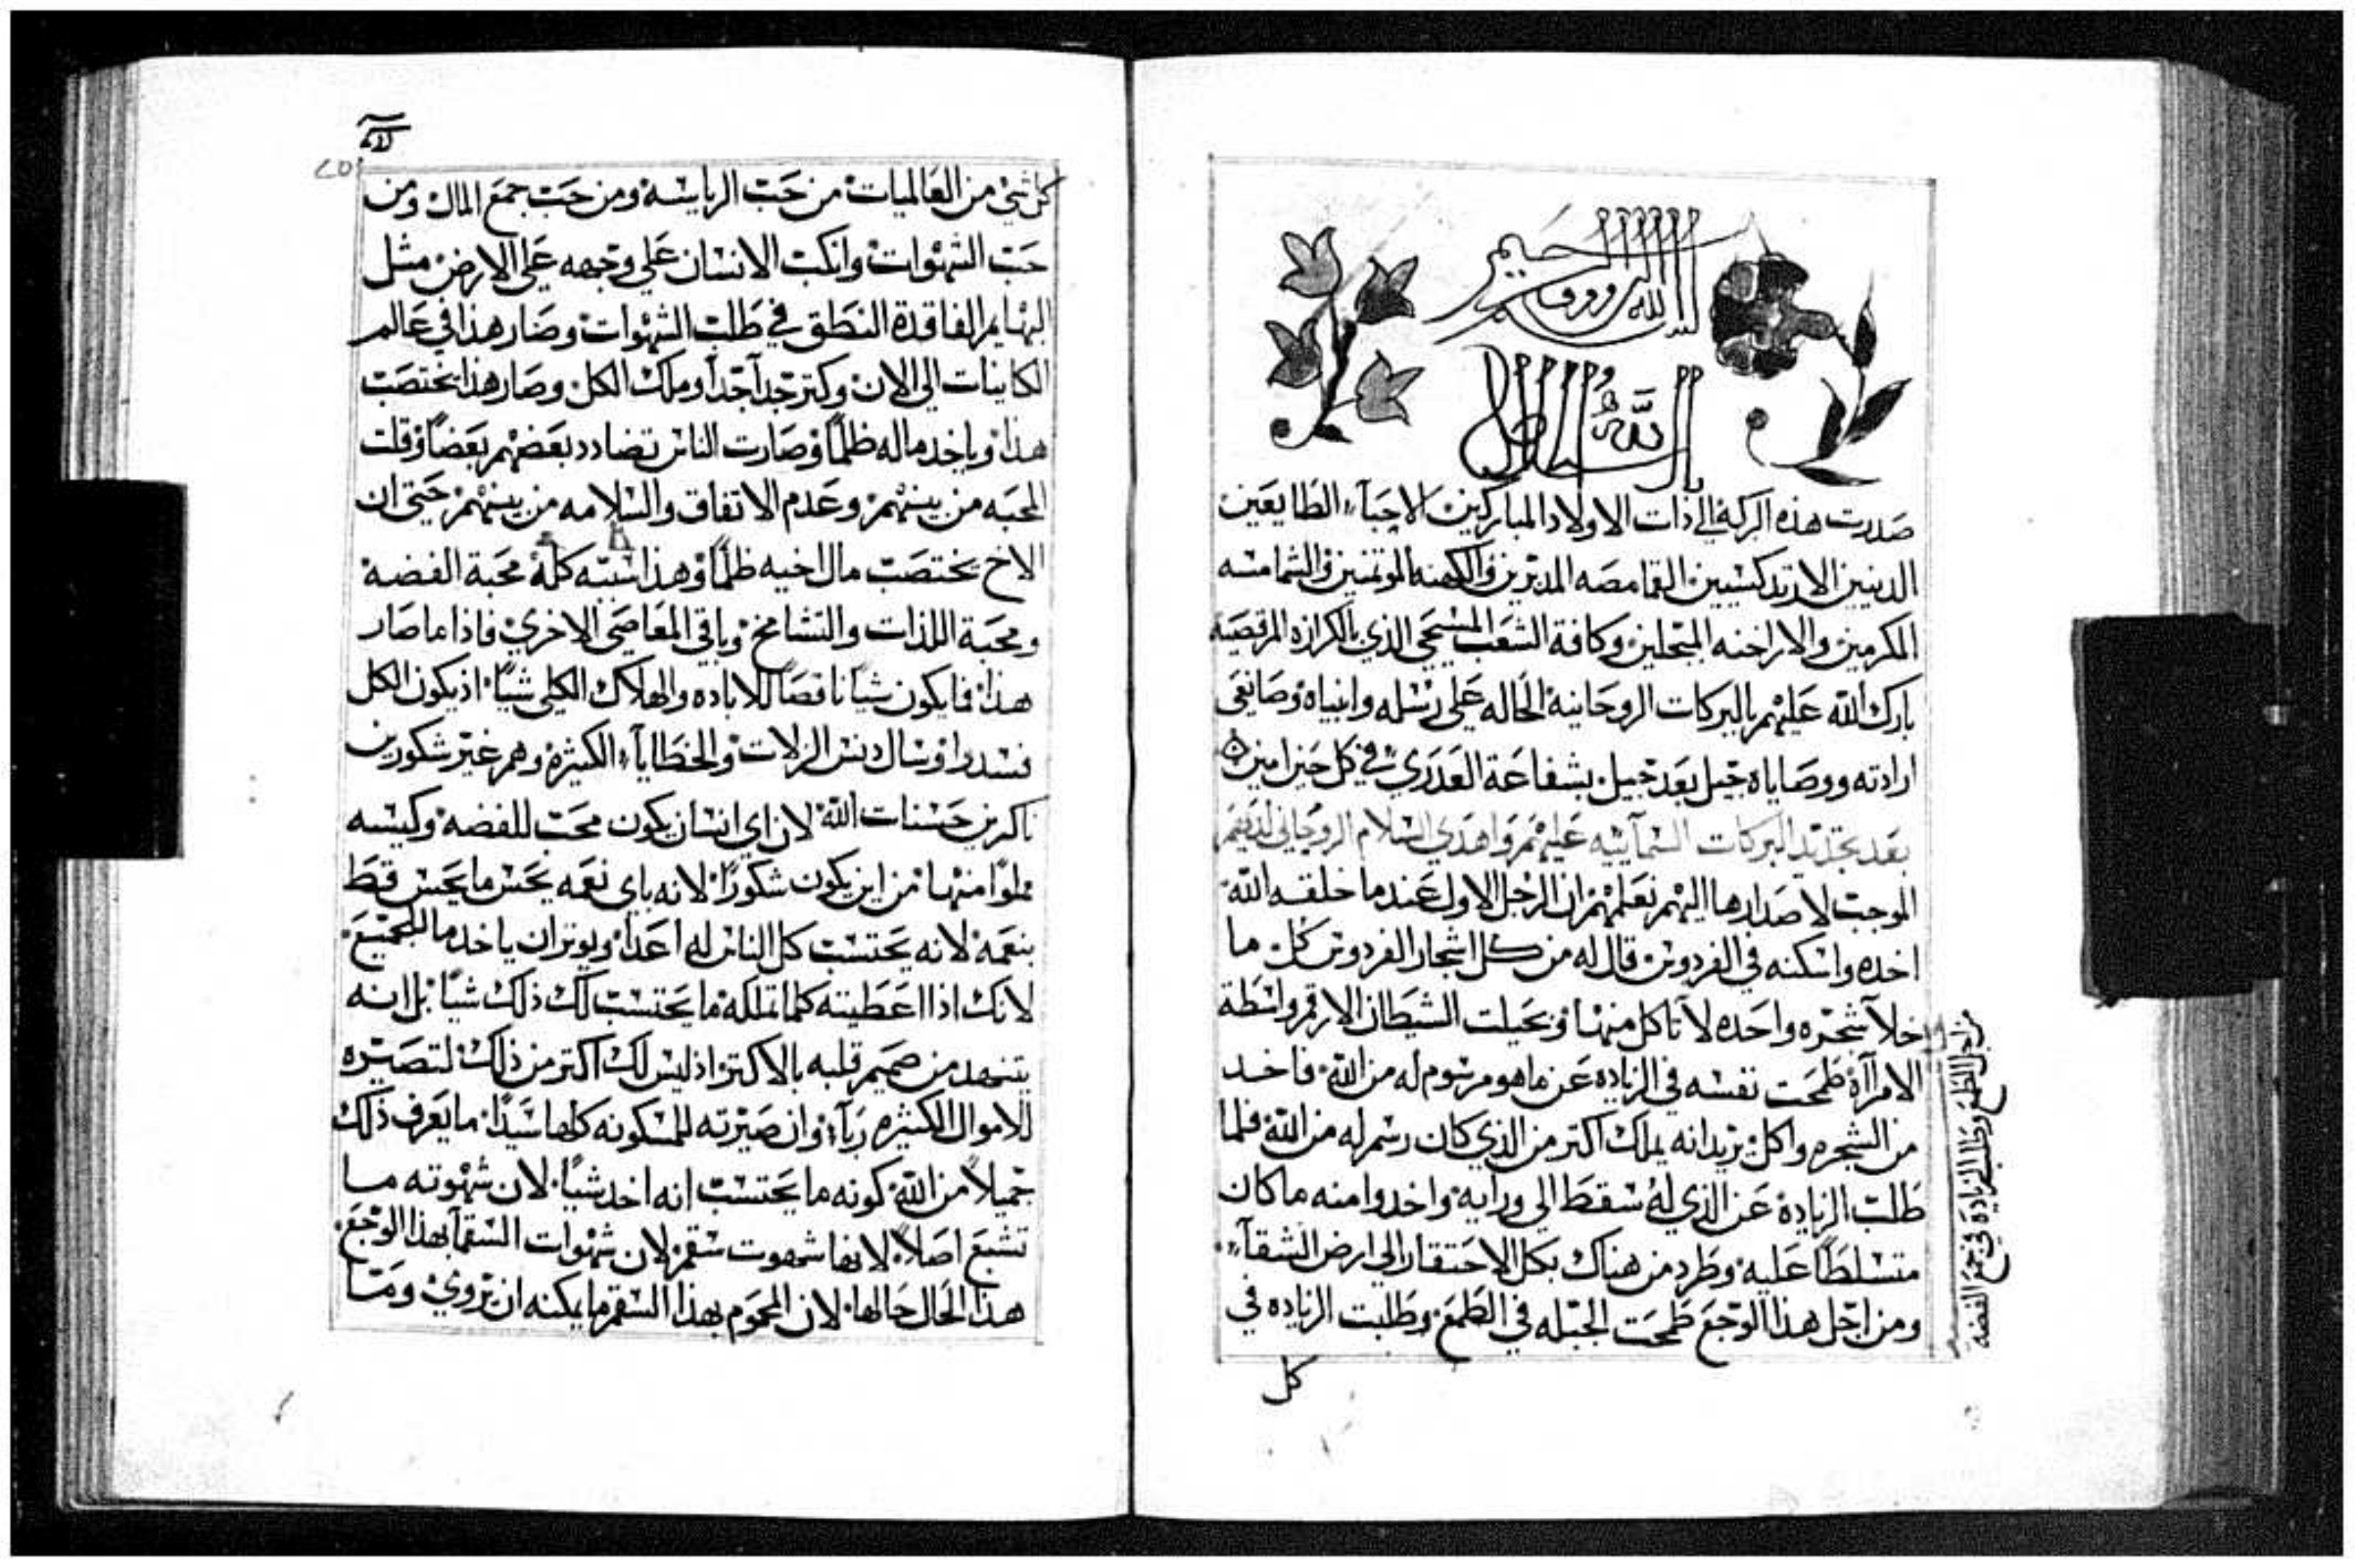 بسم الله الرووف الرحيم
صدرت هذه البركة الي ذات الاولاد المباركين الاحبآء الطايعين
الدينين الارتدكسيين القمامصه المدبرين والكهنه الموتمنين والشمامسه
المكرمين والاراخنه المبجلين وكافة الشعب المسيحي الذي بالكرازه المرقصيه
بارك الله عليهم بالبركات الروحانية الحاله علي رسله وانبياه وصانعي
ارادته ووصاياه جيل بعد جيل بشفاعة العدري في كل حين امين
بعد تجديد البركات السمآييه عليهم واهدي السلام الروحاني لديهم
الموجب لاصدارها اليهم نعلمهم ان الرجل الاول عندما خلقه الله
اخده واسكنه في الفردوس قال له من كل اشجار الفردوس كل ما
خلا شجره واحده لا تاكل منها وبحيلت الشيطان الارقم واسطة
الامرآاة طمحت نفسه في الزياده عن ماهو مرشوم له من الله فاخد
من الشجره واكل يريد انه يملك اكتر من الذي كان رسم له من الله فلما
طلب الزيادة عن الذي له سقط الي ورايه واخدوا منه ماكان
متسلطاً عليه وطرد من هناك بكل الاحتقار الي ارض الشقآء
ومن اجل هذا الوجع طمحت الجبله في الطمع وطلبت الزياده في
كل
من اجل الطمع وطلب الزيادة في جمع الفضه
كل شي من العالميات من حب الرياسة ومن حب جمع المال ومن
حب الشهوات وانكب الانسان علي وجهه علي الارض مثل
البهايم الفاقدة النطق في طلب الشهوات وصار هذا في عالم
الكاينات الي الان وكتر جداً جداً وملك الكل وصار هذا يختصب
هذا وياخد ماله ظلماً وصارت الناس تضادد بعضهم بعضاً وقلت
المحبه من بينهم وعدم الاتفاق والسلامه من بينهم حتي ان
الاخ يختصب مال اخيه ظلماً وهذا سببه كله محبة الفضة
ومحبة اللذات والتشامخ وباقي المعاصي الاخري فاذا ما صار
هذا فايكون شياً ناقصاً للاباده والهلاك الكلي شياً اذ يكون الكل
فسدوا وسال دنس الزلات والخطاياء الكثيرة وهم غير شكورين
ناكرين حسنات الله لان اي انسان يكون محب للفضه وكيسه
مملوا منها من اين يكون شكوراً لانه باي نعمه يحس ما يحس قط
بنعمة لانه يحتسب كل الناس له اعداً ويوتر ان ياخد مال الجميع
لانك اذا اعطيته كلما تملكه ما يحتسب لك ذلك شياً بل انه
يتنهد من صميم قلبه بالاكتر اذ ليس لك اكتر من ذلك لتصيره
للاموال الكثيره رباً وان صيرته للمسكونه كلها سيداً ما يعرف ذلك
جميلاً من الله كونه ما يحتسب انه اخد شياً لان شهوته ما
تشبع اصلاً لانها شهوت سقم لان شهوات السقمآ بهذا الوجع
هذا الحال حالها لان المحموم بهذا السقم ما يمكنه ان يروي ومتا